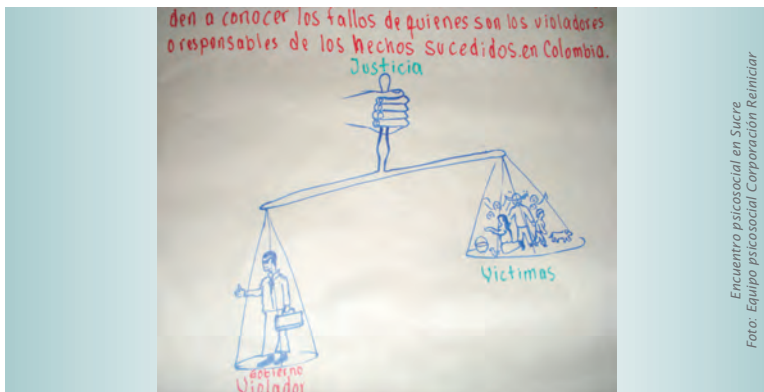 den a conocer los fallos de quienes son los violadores
o responsables de los hechos sucedidos.en Colombia.
Justicia
Victimas
Gobierno
Violador
Encuentro psicosocial en Sucre
Foto: Equipo psicosocial Corporación Reiniciar